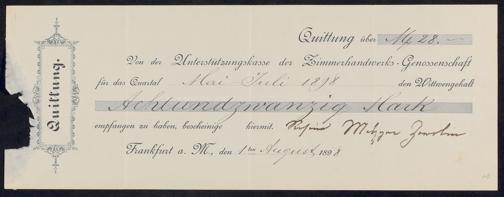 Quittung.
Quittung über M 28.—
Von der Unterstützungskasse der Zimmerhandwerks-Genossenschaft
für das Quartal Mai Juli 1898 den Wittwengehalt
Achtundzwanzig Mark
empfangen zu haben, bescheinige hiermit. Metzger
Frankfurt a. M., den 1ten August 1898